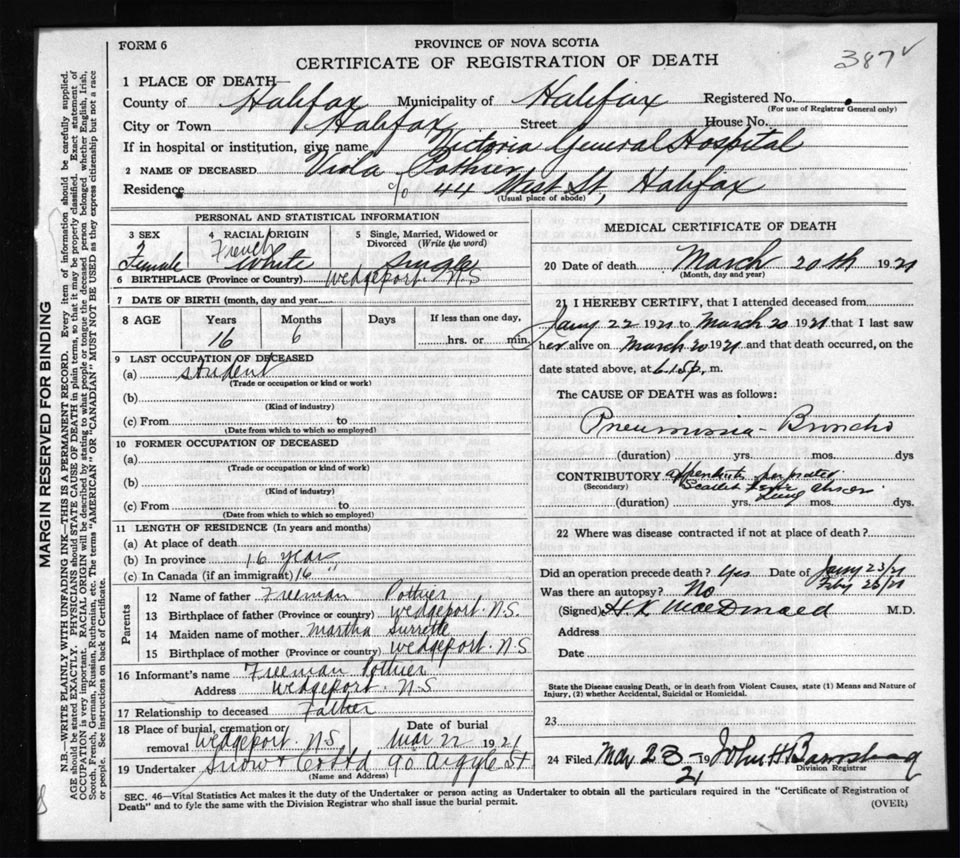 FORM 6
PROVINCE OF NOVA SCOTIA
387 ✓
CERTIFICATE OF REGISTRATION OF DEATH
1 PLACE OF DEATH—
County of Halifax Municipality of Halifax Registered No.
(For use of Registrar General only)
City or Town Halifax Street House No.
If in hospital or institution, give name Victoria General Hospital
2 NAME OF DECEASED Viola Pothier
Residence c/o 44 West St, Halifax
(Usual place of abode)
PERSONAL AND STATISTICAL INFORMATION
3 SEX 4 RACIAL ORIGIN 5 Single, Married, Widowed or Divorced (Write the word)
Female French White Single
6 BIRTHPLACE (Province or Country) Wedgeport N S
7 DATE OF BIRTH (month, day and year)
8 AGE Years Months Days If less than one day,
16 6 hrs. or min.
9 LAST OCCUPATION OF DECEASED
(a) student
(Trade or occupation or kind of work)
(b)
(Kind of industry)
(c) From to
(Date from which to which so employed)
10 FORMER OCCUPATION OF DECEASED
(a)
(Trade or occupation or kind of work)
(b)
(Kind of industry)
(c) From to
(Date from which to which so employed)
11 LENGTH OF RESIDENCE (In years and months)
(a) At place of death
(b) In province 16 years
(c) In Canada (if an immigrant) 16 "
Parents
12 Name of father Freeman Pothier
13 Birthplace of father (Province or country) Wedgeport. N.S
14 Maiden name of mother Martha Surrette
15 Birthplace of mother (Province or country) Wedgeport. N.S
16 Informant's name Freeman Pothier
Address Wedgeport. N.S
17 Relationship to deceased Father
18 Place of burial, cremation or removal Wedgeport. NS Date of burial Mar 22 1921
19 Undertaker Snow & Co Ltd 90 Argyle St
(Name and Address)
MEDICAL CERTIFICATE OF DEATH
20 Date of death March 20th 1921
(Month, day and year)
21 I HEREBY CERTIFY, that I attended deceased from
Jany 22 1921 to March 20 1921 that I last saw
her alive on March 20 1921 and that death occurred, on the
date stated above, at 6.15 p. m.
The CAUSE OF DEATH was as follows:
Pneumonia - Broncho
(duration) yrs. mos. dys
CONTRIBUTORY appendicitis perforated
(Secondary) Scarlet Fever
Lung abscess
(duration) yrs. mos. dys.
22 Where was disease contracted if not at place of death?
Did an operation precede death? Yes Date of Jany 23/21
Feby 26/21
Was there an autopsy? No
(Signed) H. K. MacDonald M.D.
Address
Date
State the Disease causing Death, or in death from Violent Causes, state (1) Means and Nature of
Injury, (2) whether Accidental, Suicidal or Homicidal.
23
24 Filed Mar 23 1921 John H
Division Registrar
SEC. 46—Vital Statistics Act makes it the duty of the Undertaker or person acting as Undertaker to obtain all the particulars required in the "Certificate of Registration of
Death" and to fyle the same with the Division Registrar who shall issue the burial permit.
(OVER)
MARGIN RESERVED FOR BINDING
N.B.—WRITE PLAINLY WITH UNFADING INK—THIS IS A PERMANENT RECORD. Every item of information should be carefully supplied.
AGE should be stated EXACTLY. PHYSICIANS should STATE CAUSE OF DEATH in plain terms, so that it may be properly classified. Exact statement of
OCCUPATION is very important. RACIAL ORIGIN will be described by stating to what people or tongue the deceased person belonged whether English, Irish,
Scotch, French, German, Russian, Ruthenian, etc. The terms "AMERICAN" OR "CANADIAN" MUST NOT BE USED as they express citizenship but not a race
or people. See instructions on back of Certificate.